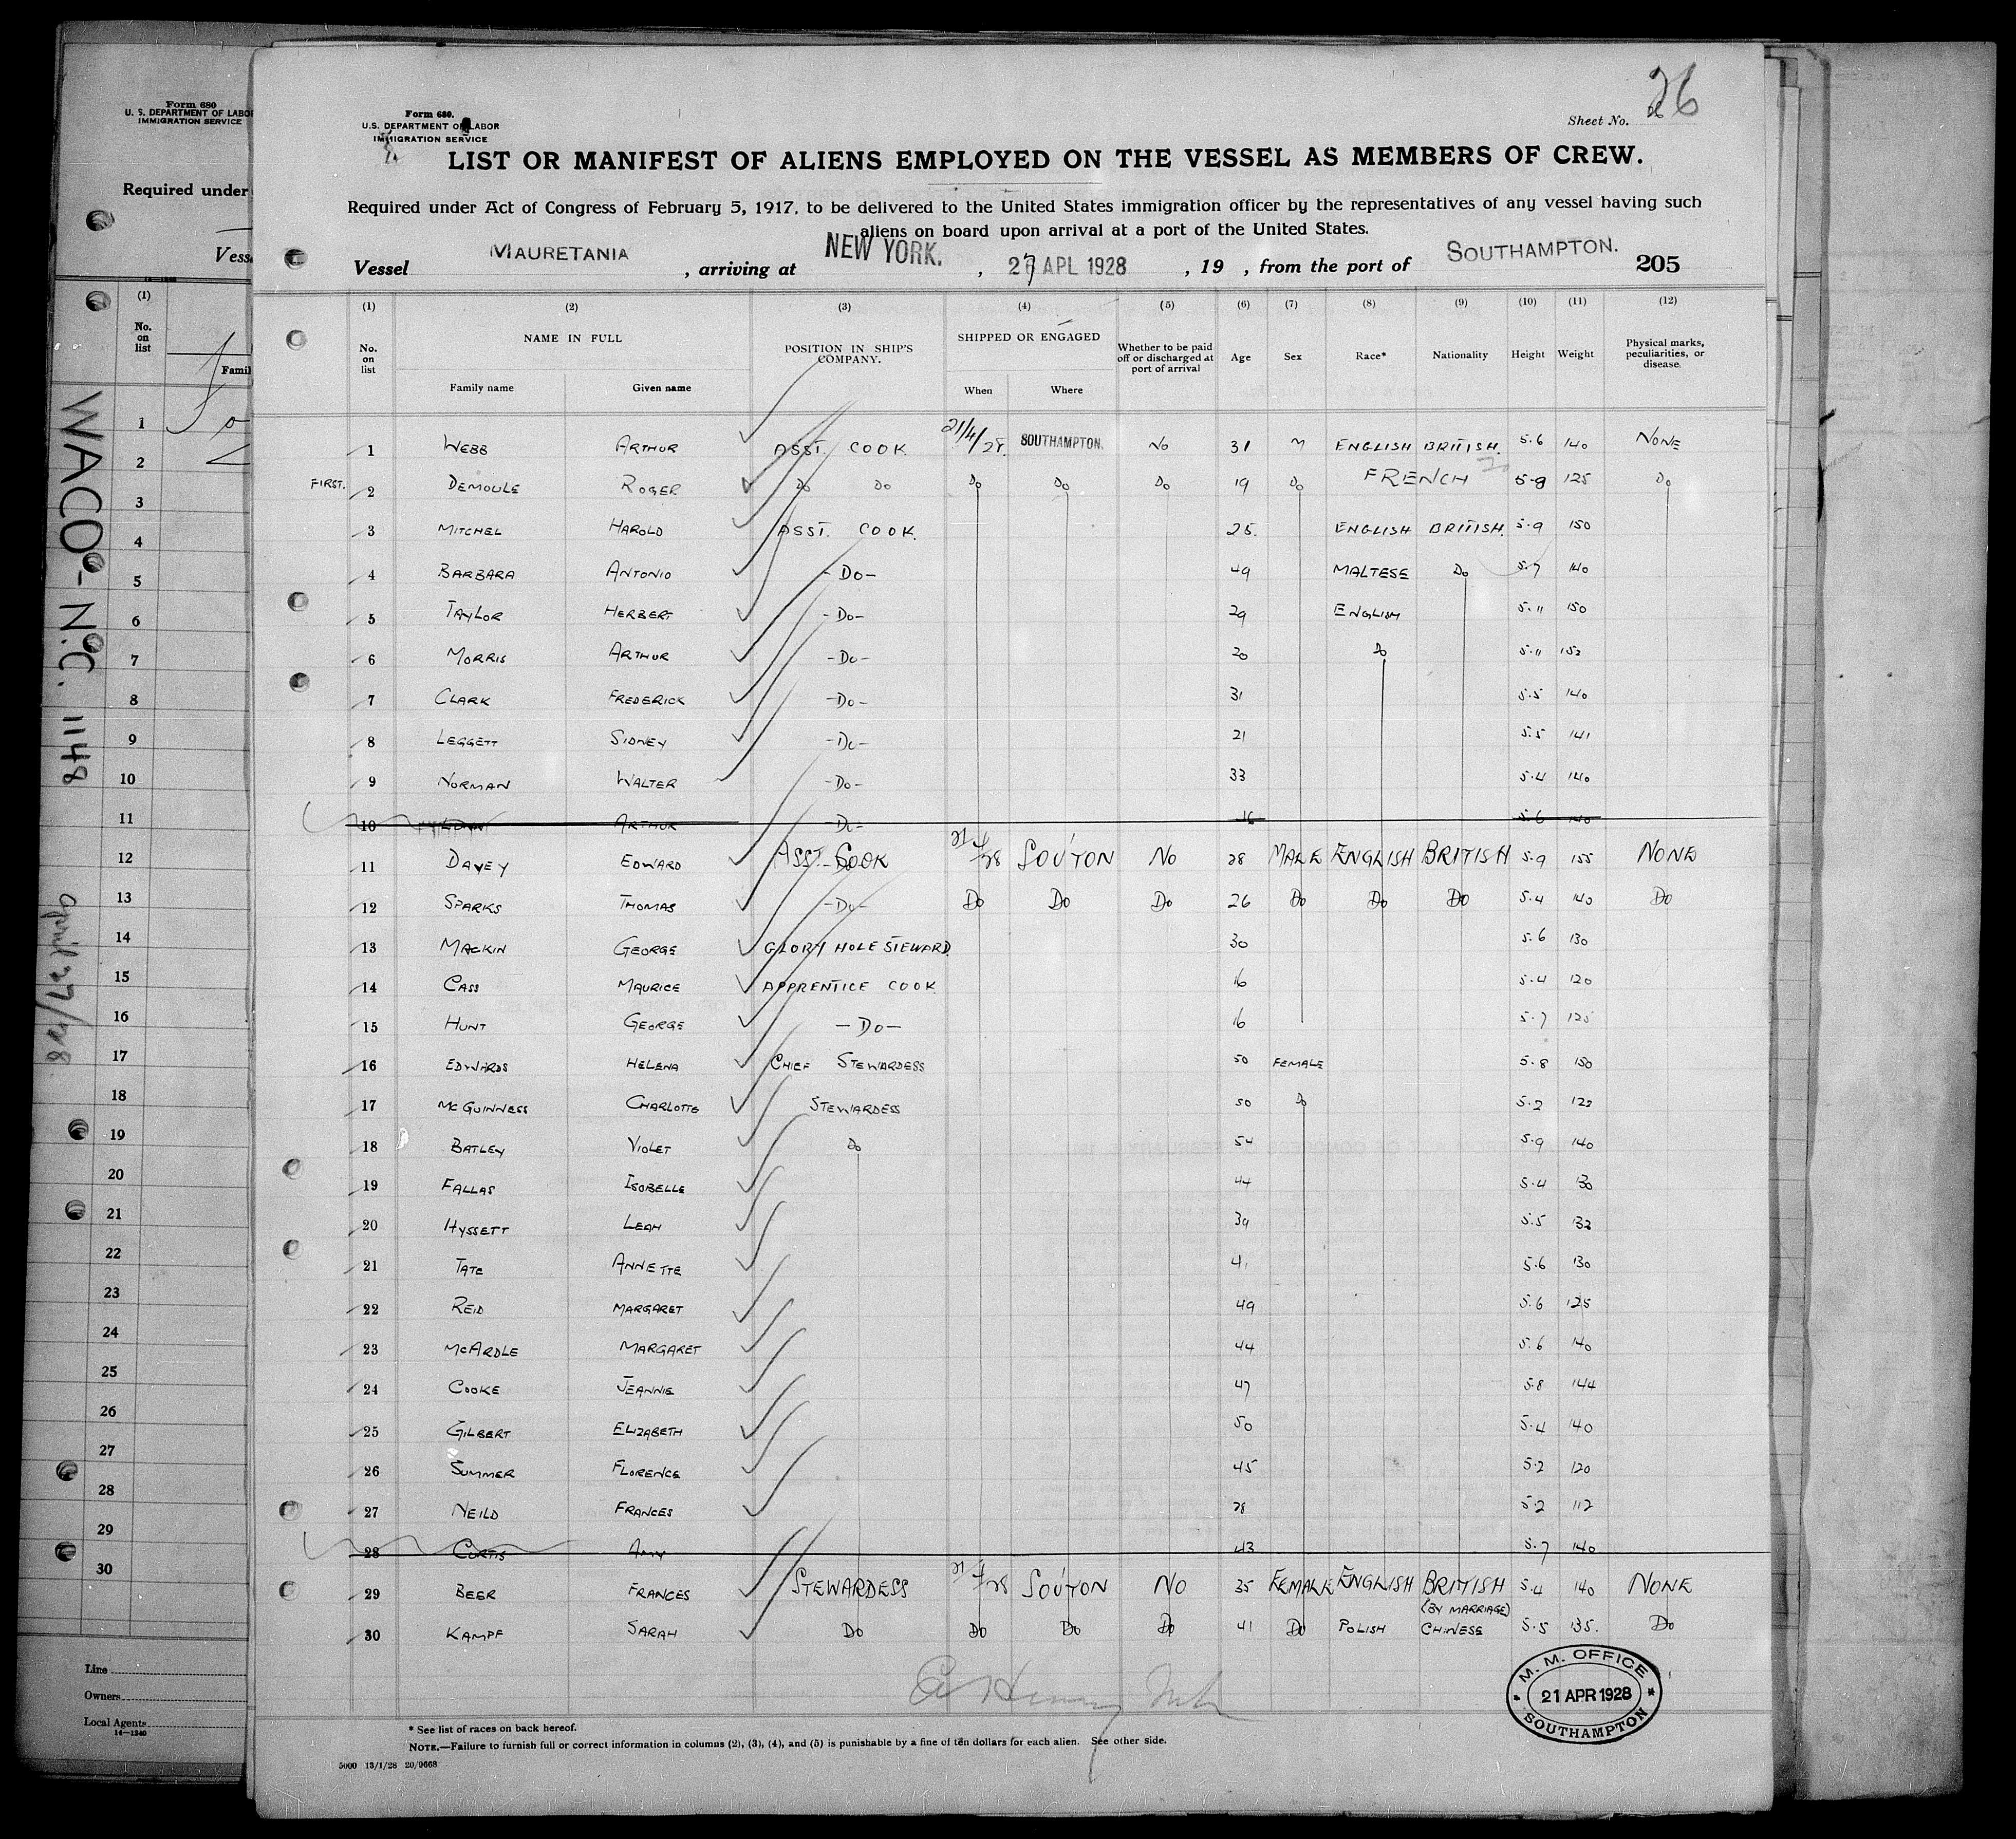 Form 680
U. S. DEPARTMENT OF LABOR
IMMIGRATION SERVICE
Required under
WACO - N.C. 1148
April 27/28
(1)
No. on list
1
2
3
4
5
6
7
8
9
10
11
12
13
14
15
16
17
18
19
20
21
22
23
24
25
26
27
28
29
30
Line
Owners
Local Agents
14-1240
Form 680.
U.S. DEPARTMENT OF LABOR
IMMIGRATION SERVICE
Sheet No. 26
LIST OR MANIFEST OF ALIENS EMPLOYED ON THE VESSEL AS MEMBERS OF CREW.
Required under Act of Congress of February 5, 1917, to be delivered to the United States immigration officer by the representatives of any vessel having such
aliens on board upon arrival at a port of the United States.
Vessel MAURETANIA, arriving at NEW YORK., 27 APL 1928, 19 , from the port of SOUTHAMPTON. 205
(1) (2) (3) (4) (5) (6) (7) (8) (9) (10) (11) (12)
No. on list NAME IN FULL POSITION IN SHIP'S COMPANY. SHIPPED OR ENGAGED Whether to be paid off or discharged at port of arrival Age Sex Race* Nationality Height Weight Physical marks, peculiarities, or disease.
Family name Given name When Where
1 WEBB ARTHUR ASST. COOK 21/4/28. SOUTHAMPTON. NO 31 M ENGLISH BRITISH. 5.6 140 NONE
FIRST. 2 DEMOULE ROGER DO DO DO DO DO 19 DO FRENCH 5-8 125 DO
3 MITCHEL HAROLD ASST. COOK. 25. ENGLISH BRITISH. 5.9 150
4 BARBARA ANTONIO -DO- 49 MALTESE DO 5.7 140
5 TAYLOR HERBERT -DO- 29 ENGLISH 5.11 150
6 MORRIS ARTHUR -DO- 20 DO 5.11 152
7 CLARK FREDERICK -DO- 31 5.5 140
8 LEGGETT SIDNEY -DO- 21 5.5 141
9 NORMAN WALTER -DO- 33 5.4 140
10 ARTHUR -DO- 5.6 140
11 DAVEY EDWARD ASST. COOK 21/4/28 SOU'TON NO 28 MALE ENGLISH BRITISH 5.9 155 NONE
12 SPARKS THOMAS -DO- DO DO DO 26 DO DO DO 5.4 140 DO
13 MACKIN GEORGE GLORY HOLE STEWARD. 30 5.6 130
14 CASS MAURICE APPRENTICE COOK. 16 5.4 120
15 HUNT GEORGE -DO- 16 5.7 125
16 EDWARDS HELENA CHIEF STEWARDESS 50 FEMALE 5.8 150
17 MCGUINNESS CHARLOTTE STEWARDESS 50 DO 5.2 122
18 BATLEY VIOLET DO 54 5.9 140
19 FALLAS ISOBELLE 44 5.4 130
20 HYSSETT LEAH 39 5.5 132
21 TATE ANNETTE 41 5.6 130
22 REID MARGARET 49 5.6 125
23 MCARDLE MARGARET 44 5.6 140
24 COOKE JEANNIE 47 5.8 144
25 GILBERT ELIZABETH 50 5.4 140
26 SUMMER FLORENCE 45 5.2 120
27 NEILD FRANCES 28 5.2 112
28 CURTIS AMY 43 5.7 140
29 BEER FRANCES STEWARDESS 21/4/28 SOU'TON NO 35 FEMALE ENGLISH BRITISH 5.4 140 NONE
30 KAMPF SARAH DO DO DO DO 41 DO POLISH (BY MARRIAGE) CHINESE 5.5 135. DO
M. M. OFFICE
21 APR 1928
SOUTHAMPTON
* See list of races on back hereof.
NOTE.—Failure to furnish full or correct information in columns (2), (3), (4), and (5) is punishable by a fine of ten dollars for each alien. See other side.
5000 13/1/28 20/9668